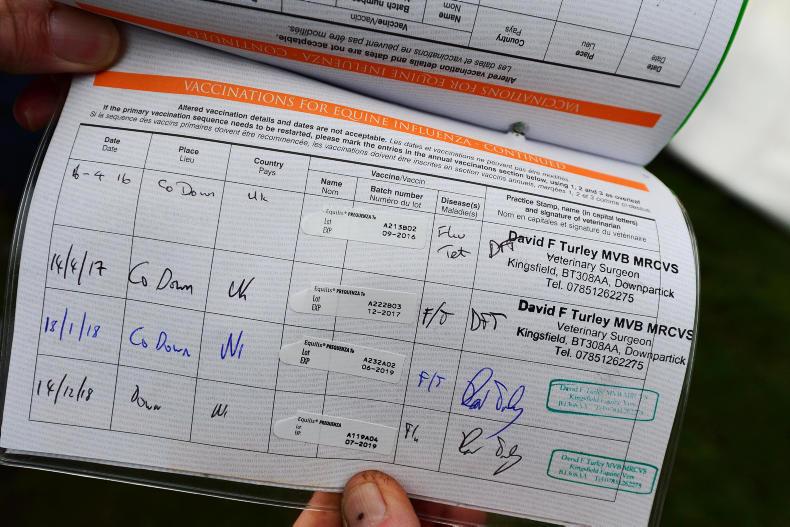 Date
Date
Place
Lieu
Country
Pays
Vaccine/Vaccin
Name
Nom
Batch number
Altered vaccination details and dates are not acceptable.
Les dates et vaccinations ne peuvent pas être modifiés.
VACCINATIONS FOR EQUINE INFLUENZA - CONTINUED
VACCINATIONS FOR EQUINE INFLUENZA - CONTINUED
Altered vaccination details and dates are not acceptable. Les dates et vaccinations ne peuvent pas être modifiés.
If the primary vaccination sequence needs to be restarted, please mark the entries in the annual vaccinations section below, using 1, 2 and 3 as overleaf
Si la sequence des vaccins primaires doivent être recommencée, les vaccinations doivent être inscrites en section vaccins annuels, marquées 1, 2 or 3 comme ci-dessus.
Date
Date
Place
Lieu
Country
Pays
Vaccine/Vaccin
Name
Nom
Batch number
Numéro du lot
Disease(s)
Maladie(s)
Practice Stamp, name (in capital letters)
and signature of veterinarian
Nom en capitales et signature du vétérinaire
6-4 16 Co Down Uk
Equilis® PREQUENZA Te
Lot A213B02
EXP 09-2016
Flu
Tet
DFT
David F Turley MVB MRCVS
Veterinary Surgeon
Kingsfield, BT308AA, Downpartick
Tel. 07851262275
14/4/17 Co Down Uk
Equilis® PREQUENZA Te
Lot A222B03
EXP 12-2017
F/T
DFT
David F Turley MVB MRCVS
Veterinary Surgeon
Kingsfield, BT308AA, Downpartick
Tel. 07851262275
18/1/18 Co Down NI
Equilis® PREQUENZA Te
Lot A232A02
EXP 06-2019
F/T
David F Turley MVB MRCVS
Kingsfield Equine Vets
BT308AA Tel 07851262275
14/12/18 Down NI
Equilis® PREQUENZA
Lot A119A04
EXP 07-2019
David F Turley MVB MRCVS
Kingsfield Equine Vets
BT308AA Tel 07851262275